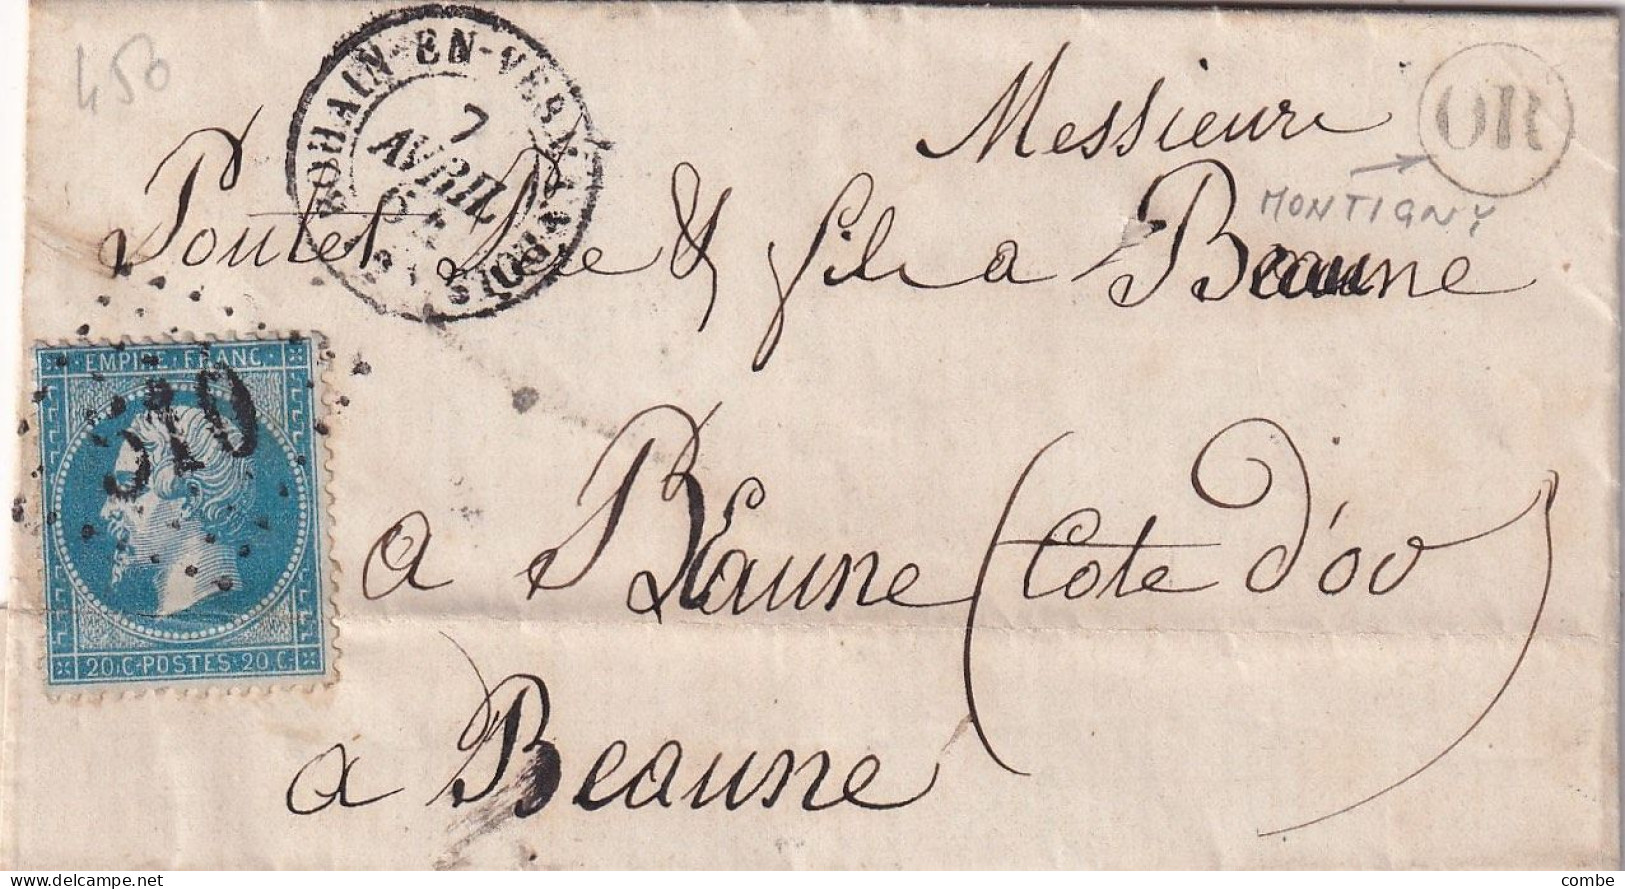 450
BOHAIN-EN-VERMANDOIS
7
AVRIL
OR
MONTIGNY
Messieurs
Poulet Père & fils a Beaune
EMPIRE FRANC
510
20.C·POSTES·20.C
a BEaune (Cote d'or)
a Beaune
www.delcampe.net
combe